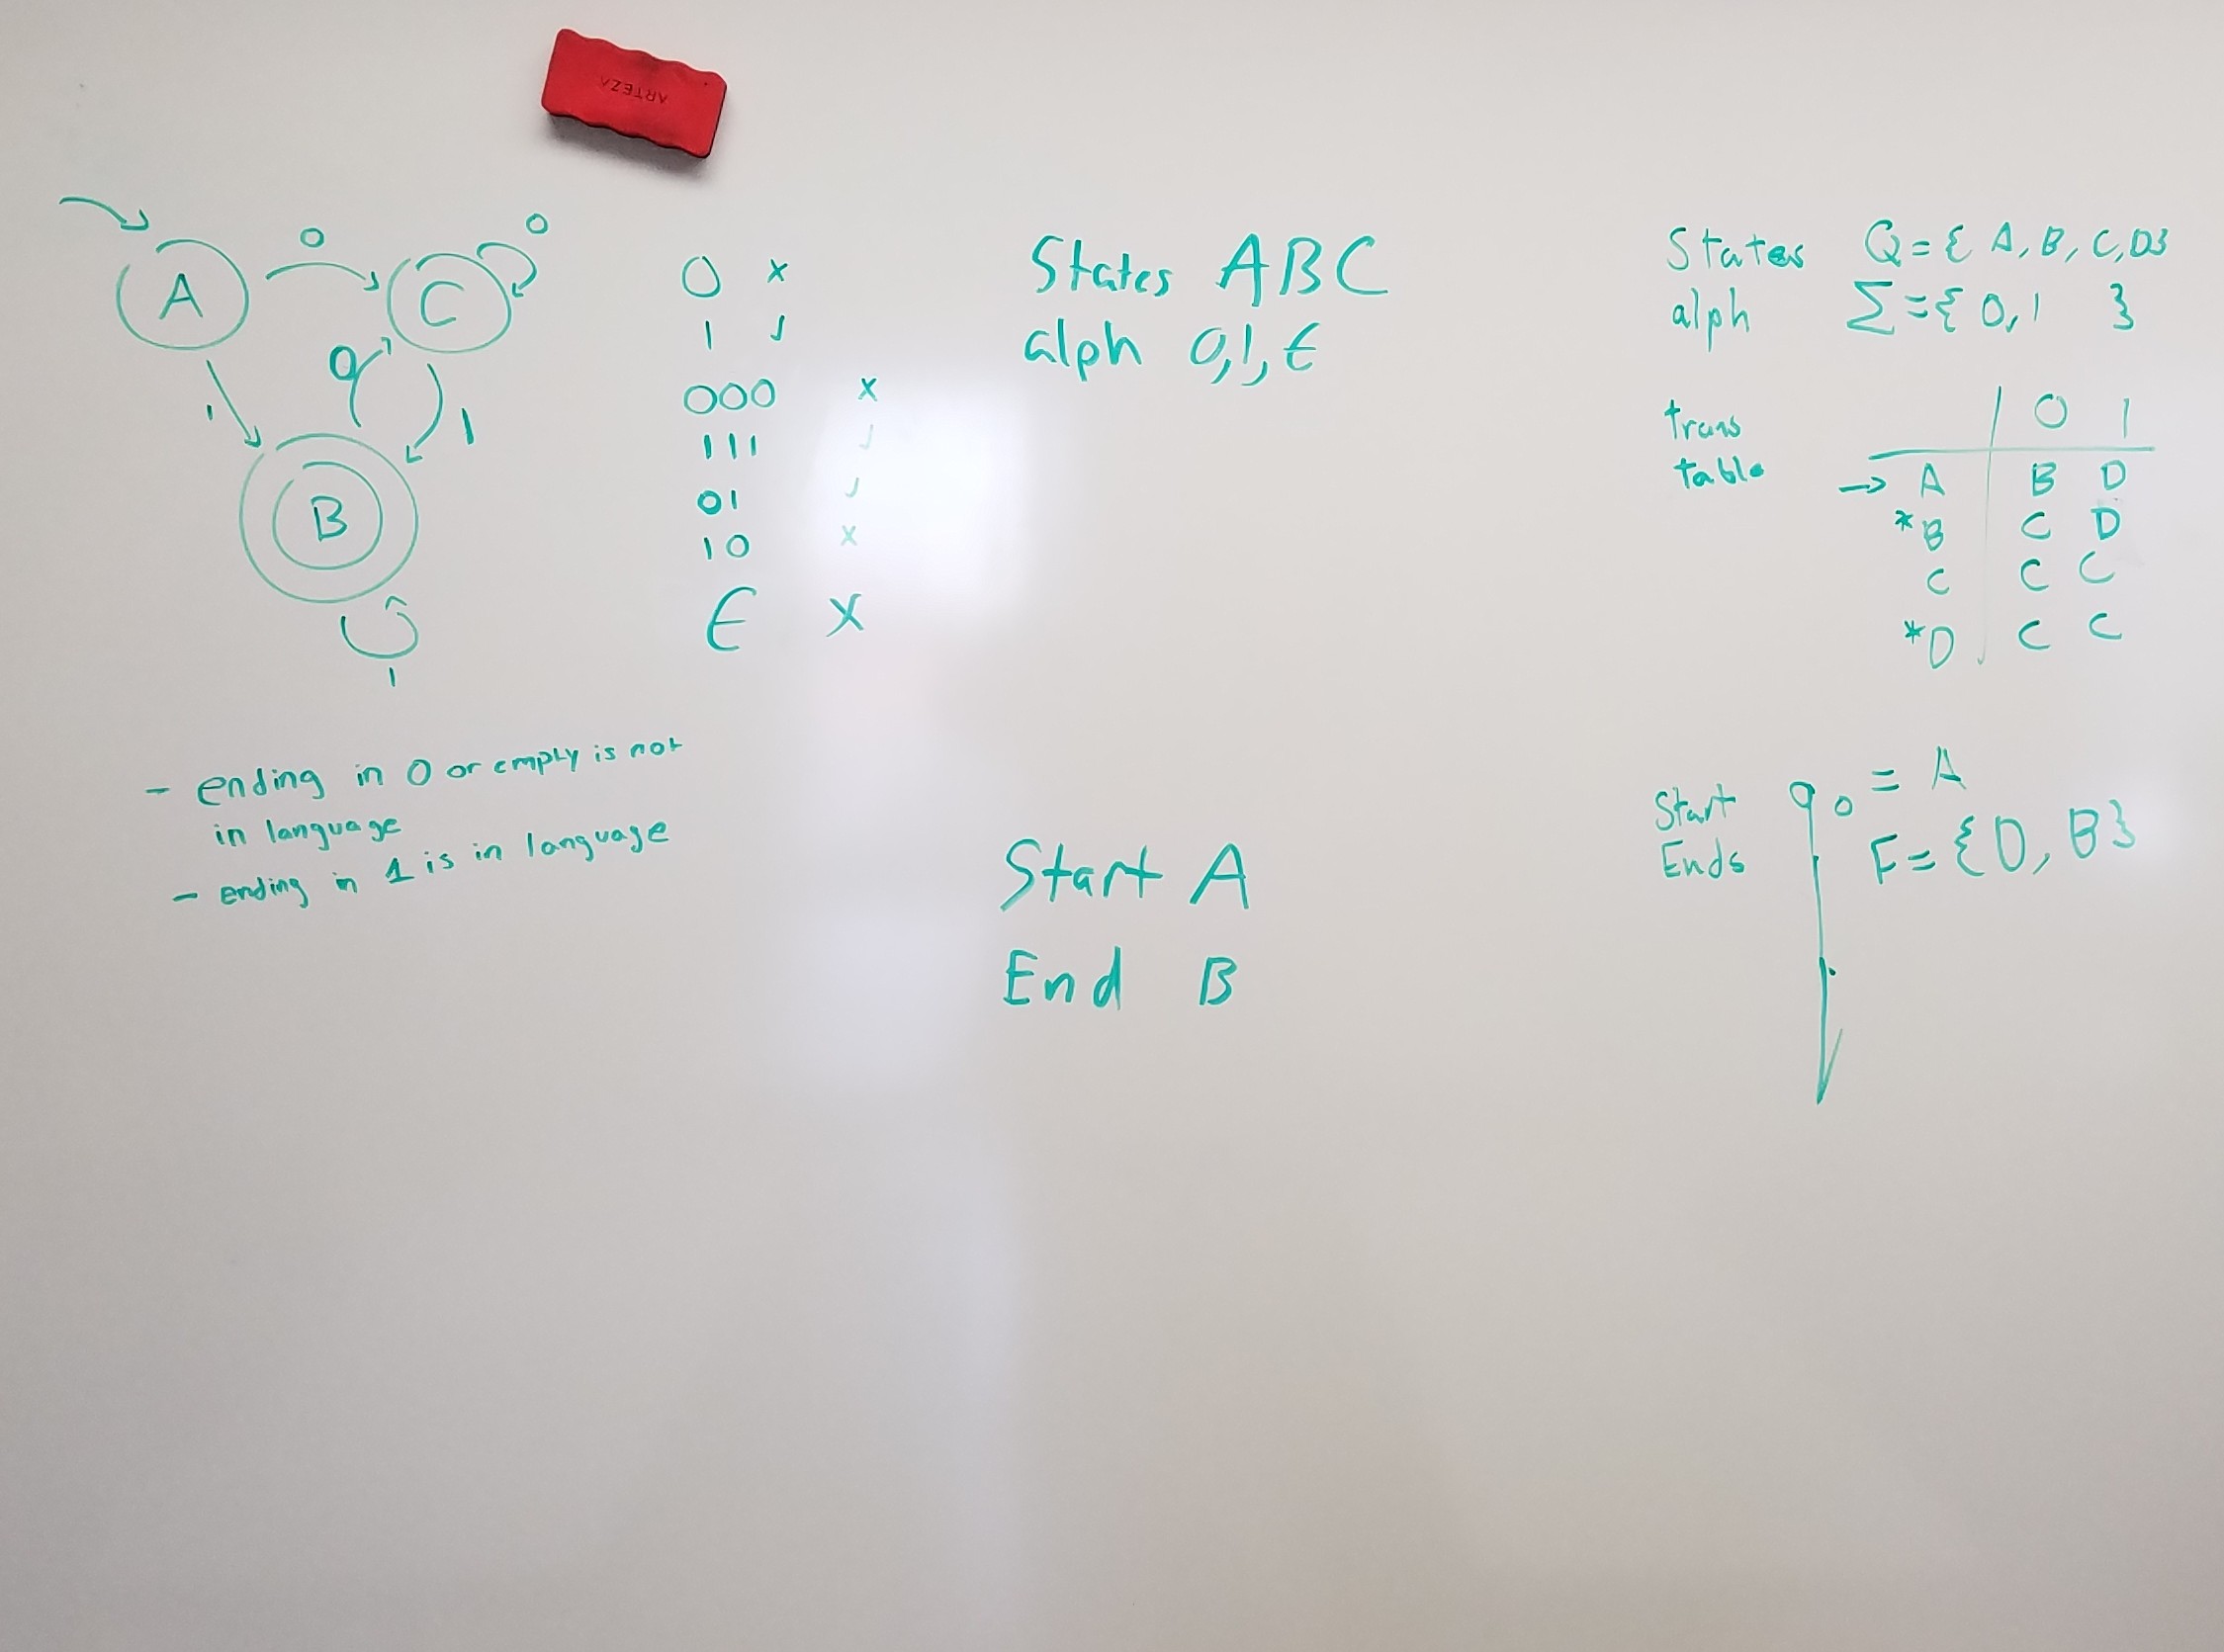 ARTEZA
A
0
C
0
1
0
1
B
1
0 x
1 ✓
000 x
111 ✓
01 ✓
10 x
ϵ x
- ending in 0 or empty is not
in language
- ending in 1 is in language
States ABC
alph 0,1,ϵ
Start A
End B
States Q={A,B,C,D}
alph Σ={0,1 }
trans
table
0 1
→ A B D
*B C D
C C C
*D C C
Start q0 = A
Ends F={D,B}